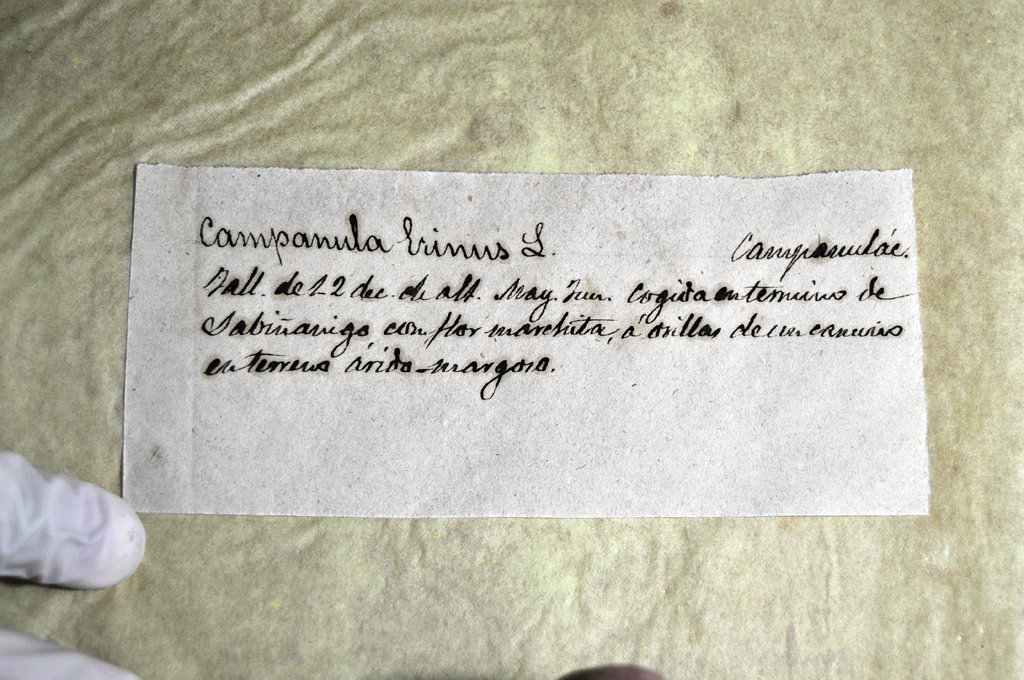 Campanula Erinus L. Campanulác.
Tall. de 1-2 dec. de alt. May. Jun. cogida en termino de
Sabiñanigo con flor marchita, á orillas de un camino
en terreno árido-margoso.